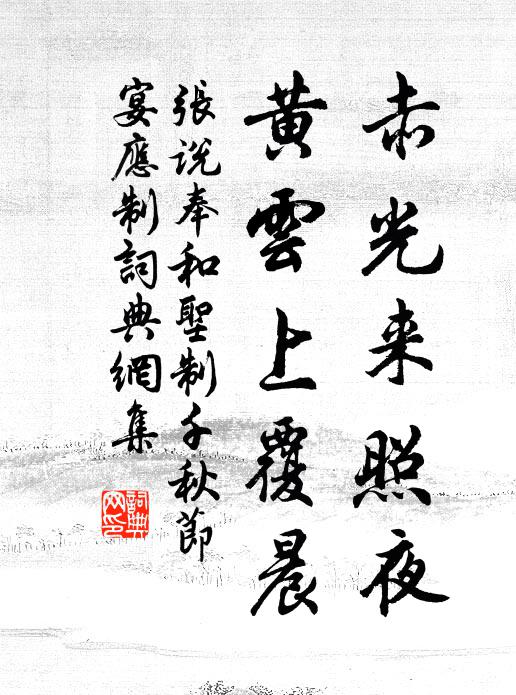 赤光来照夜
黄雲上覆晨
張説奉和聖制千秋節
宴應制詞典網集
詞典
网印